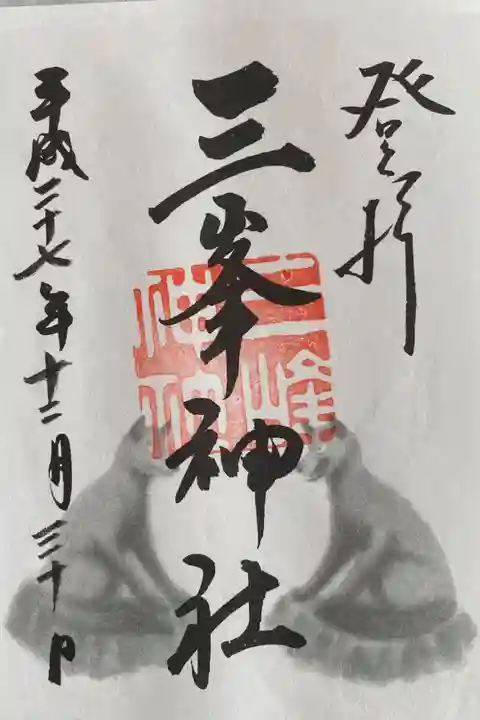 登拝
三峯神社
三峰神社
平成二十七年十二月三十日